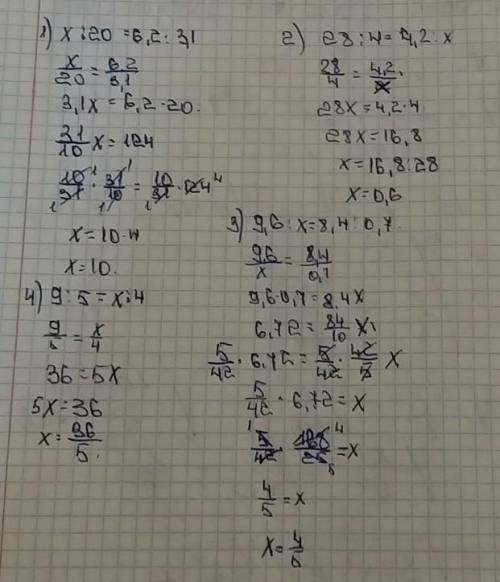 1) x : 20 = 6,2 : 3,1
x/20 = 6,2/3,1
3,1x = 6,2 · 20.
31/10 x = 124
10/31 · 31/10 = 10/31 · 124 4
x = 10·4
x = 10.
2) 28 : 4 = 4,2 : x
28/4 = 4,2/x
28x = 4,2·4
28x = 16,8
x = 16,8:28
x = 0,6
3) 9,6 : x = 8,4 : 0,7
9,6/x = 8,4/0,7
9,6·0,7 = 8,4x
6,72 = 84/10 x
5/42 · 6,72 = 5/42 · 42/5 x
5/42 · 6,72 = x
5/42 · 168/25 = x
4/5 = x
x = 4/5
4) 9 : 5 = x : 4
9/5 = x/4
36 = 5x
5x = 36
x = 36/5.